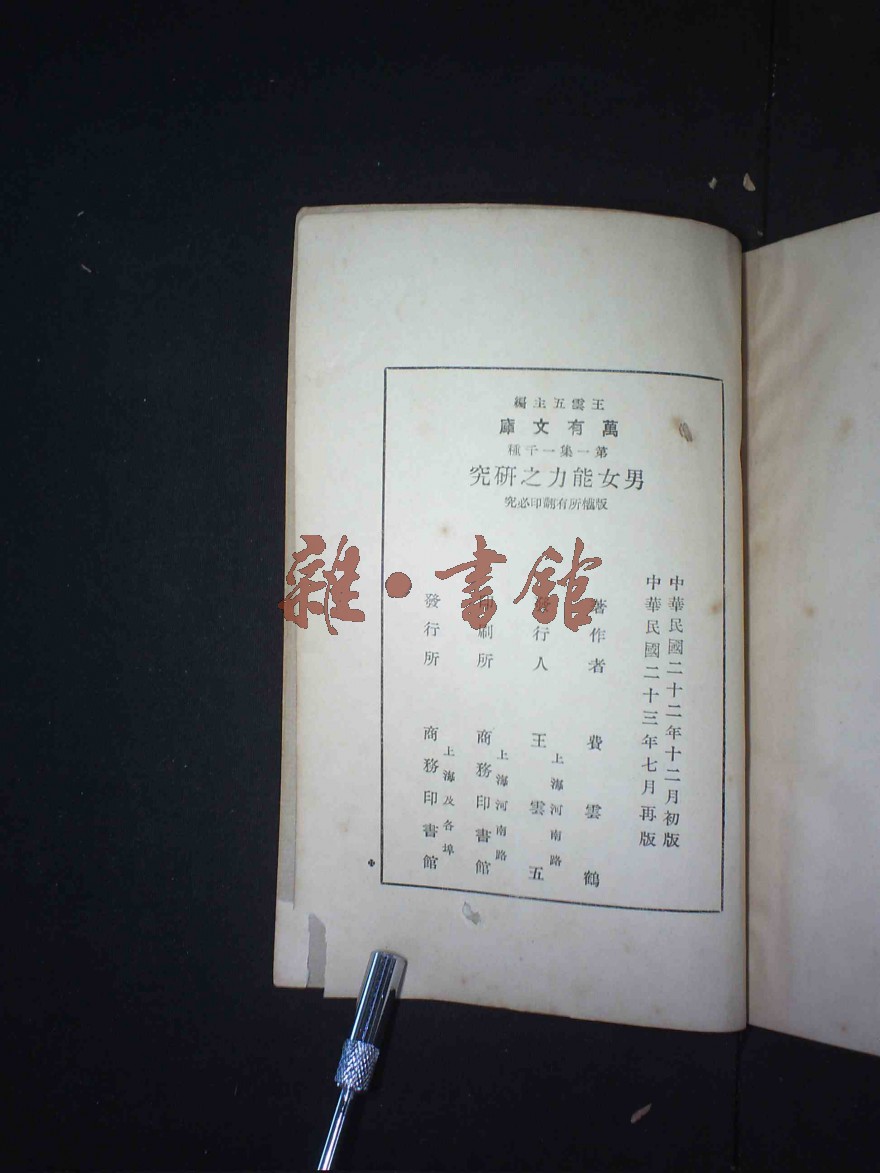 王雲五主編
萬有文庫
第一集一千種
男女能力之研究
版權所有翻印必究
中華民國二十二年十二月初版
中華民國二十三年七月再版
著作者 費雲鶴
發行人 王雲五
上海河南路
印刷所 商務印書館
上海河南路
發行所 商務印書館
上海及各埠
雜·書館